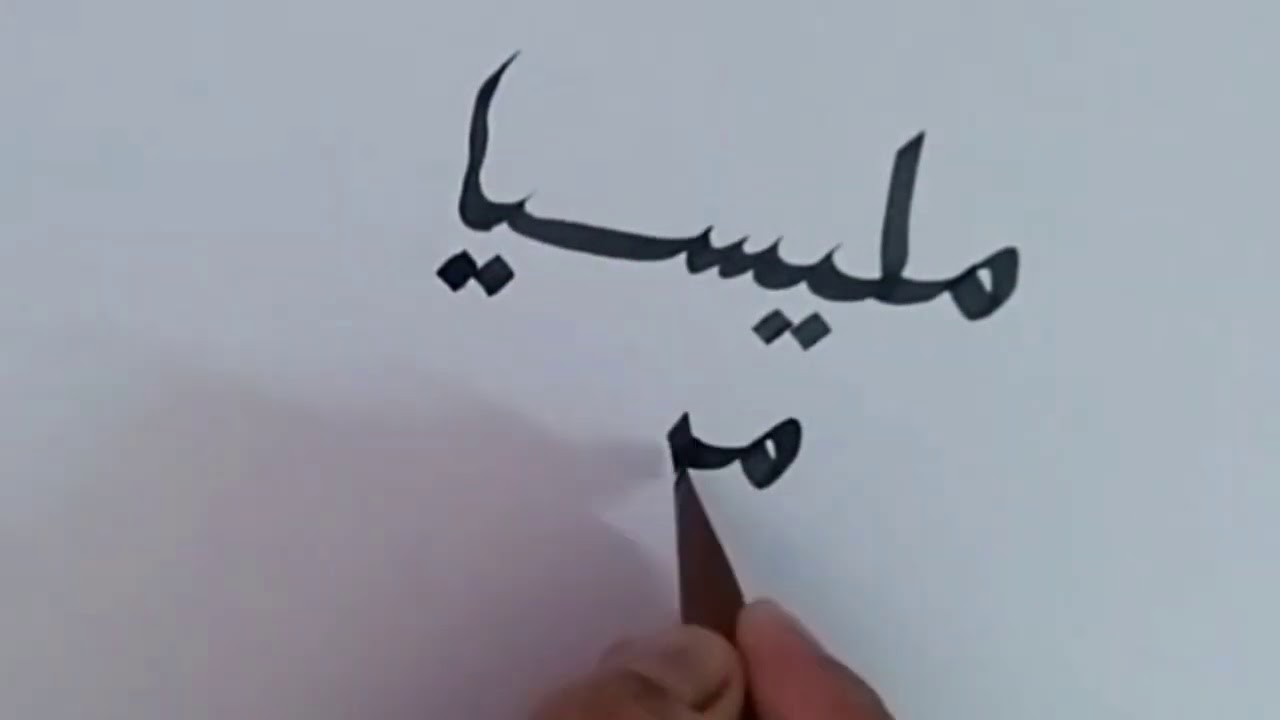 مليسيا